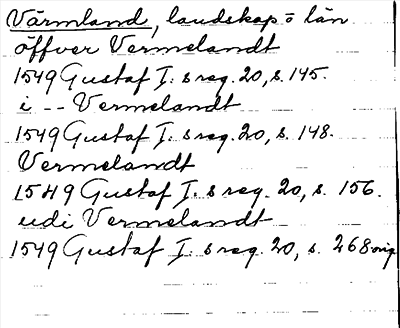 Värmland, landskap o län
öffver Vermelandt
1549 Gustaf I:s reg. 20, s. 145.
i -- Vermelandt
1549 Gustaf I:s reg. 20, s. 148.
Vermelandt
1549 Gustaf I:s reg. 20, s. 156.
udi Vermelandt
1549 Gustaf I:s reg. 20, s. 268 orig